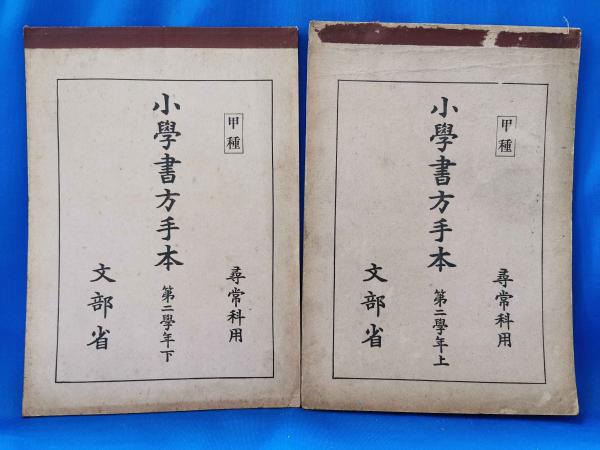 甲種
尋常科用
小學書方手本 第二學年下
文部省
甲種
尋常科用
小學書方手本 第二學年上
文部省